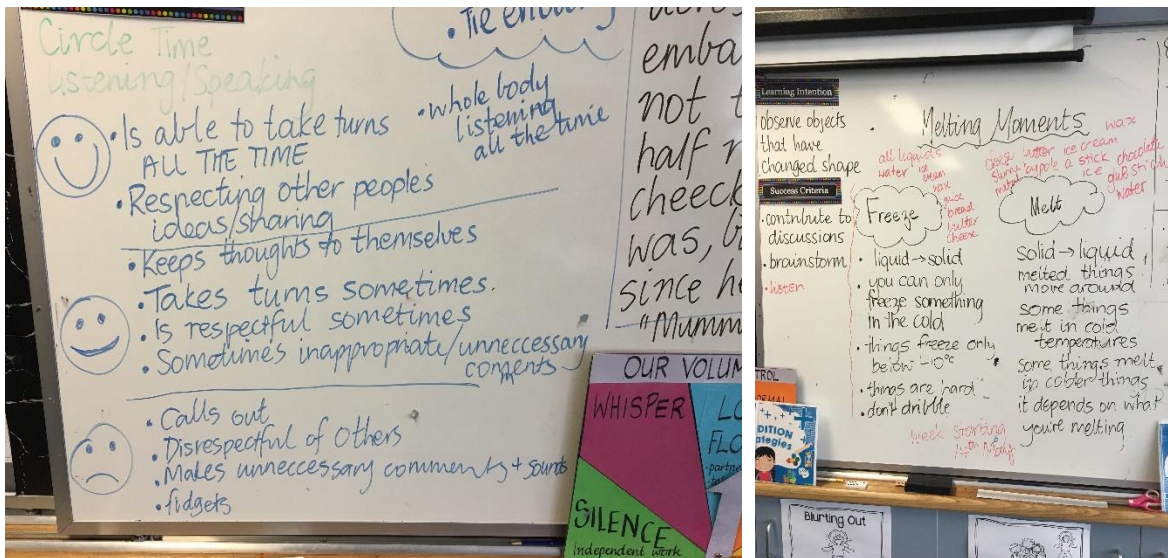 Circle Time
Listening/Speaking
• Is able to take turns
ALL THE TIME
• Respecting other peoples
ideas/sharing
• Keeps thoughts to themselves
• Takes turns sometimes.
• Is respectful sometimes
• Sometimes inappropriate/unneccessary
comments
• Calls out
• Disrespectful of others
• Makes unneccessary comments + sounds
• fidgets
• whole body
listening
all the time
emba
not t
half r
cheeck
was, b
since h
"Mumm
OUR VOLUM
WHISPER
SILENCE
Independent work
Learning Intention
observe objects
that have
changed shape
Success Criteria
• contribute to
discussions
• brainstorm
• listen
Melting Moments
all liquids
water ice
cream
wax
juice
bread
butter
cheese
Freeze
• liquid→solid
• you can only
freeze something
in the cold
• things freeze only
below -10°C
• things are 'hard'
• don't dribble
wax
butter ice cream
a stick chocolate
metal
ice glue stick
water
Melt
solid→liquid
melted things
move around
some things
melt in cold
temperatures
some things melt
in colder things
it depends on what
you're melting
week starting
DITION
ategies
Blurting Out